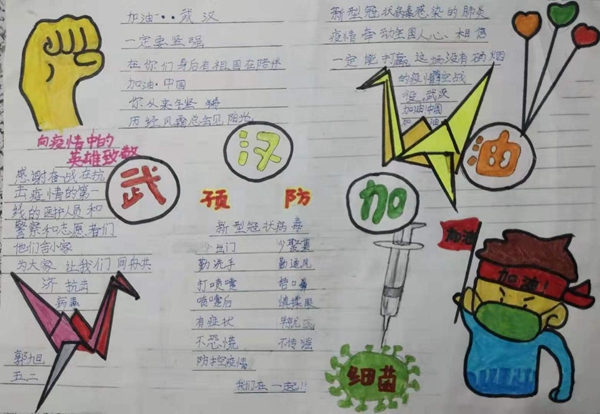 加油··武汉
一定要坚强
在你们身后有祖国在陪伴
加油·中国
你从来不
历经风雨总会见阳光
新型冠状病毒感染的肺炎
疫情牵动全国人心,相信
一定能打赢这场没有硝烟
的疫情
武汉
加油中国
向疫情中的
英雄致敬
感谢奋战在抗
击疫情的第一
线的医护人员和
警察和志愿者们
他们舍小家
为大家 让我们
抗击
武
汉
加
油
预 防
新型冠状病毒
少出门 少聚集
勤洗手 勤通风
打喷嚏
喷嚏后
有症状
不恐慌 不传谣
防控疫情
我们在一起!!
细菌
加油
加油!
五二